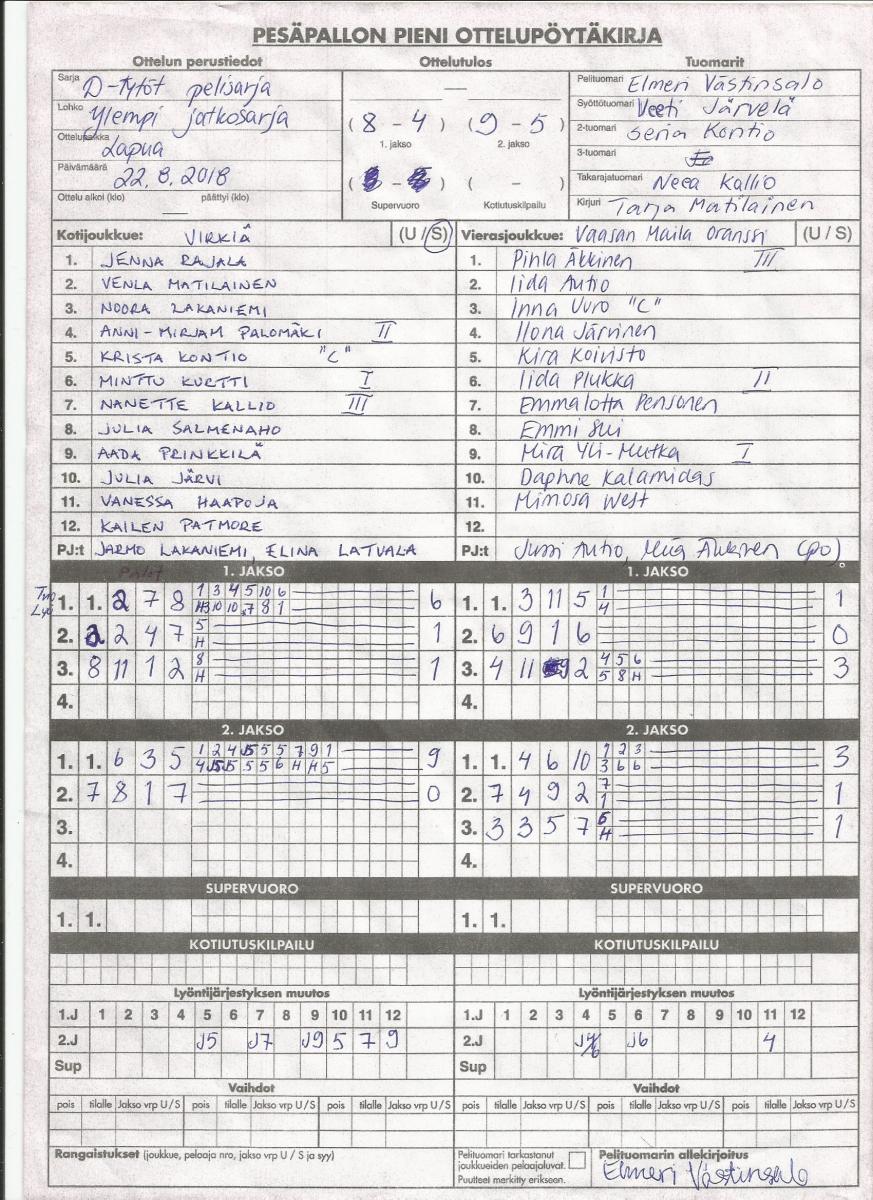 PESÄPALLON PIENI OTTELUPÖYTÄKIRJA
Ottelun perustiedot
Sarja D-tytöt pelisarja
Lohko Ylempi jatkosarja
Ottelupaikka Lapua
Päivämäärä 22.8.2018
Ottelu alkoi (klo) — päättyi (klo)
Ottelutulos
—
( 8 - 4 ) ( 9 - 5 )
1. jakso 2. jakso
( - ) ( - )
Supervuoro Kotiutuskilpailu
Tuomarit
Pelituomari Elmeri Västinsalo
Syöttötuomari Veeti Järvelä
2-tuomari Senja Kontio
3-tuomari
Takarajatuomari Neea Kallio
Kirjuri Tarja Matilainen
Kotijoukkue: VIRKIÄ (U / S)
1. JENNA RAJALA
2. VENLA MATILAINEN
3. NOORA LAKANIEMI
4. ANNI-MIRJAM PALOMÄKI II
5. KRISTA KONTIO "C"
6. MINTTU KURTTI I
7. NANETTE KALLIO III
8. JULIA SALMENAHO
9. AADA PRINKKILÄ
10. JULIA JÄRVI
11. VANESSA HAAPOJA
12. KAILEN PATMORE
PJ:t JARMO LAKANIEMI, ELINA LATVALA
Vierasjoukkue: Vaasan Maila Oranssi (U / S)
1. Pihla Äkkinen III
2. Iida Autio
3. Inna Uuro "C"
4. Ilona Järvinen
5. Kira Koivisto
6. Iida Plukka II
7. Emmalotta Pensonen
8. Emmi
9. Mira Yli-Mutka I
10. Daphne Kalamidas
11. Mimosa West
12.
PJ:t Jussi Autio, Miia Äkkinen (po)
1. JAKSO
Palot
Tuo 1 3 4 5 10 6
Lyö 1. 1. 2 7 8 H3 10 10 7 8 1 6
2. 2 2 4 7 5 H 1
3. 8 11 1 2 8 H 1
4.
1. JAKSO
1. 1. 3 11 5 1 4 1
2. 6 9 1 6 0
3. 4 11 9 2 4 5 6 3
5 8 H
4.
2. JAKSO
1 2 4 J5 5 5 7 9 1
1. 1. 6 3 5 4 J5 J5 5 5 6 H H 5 9
2. 7 8 1 7 0
3.
4.
2. JAKSO
1. 1. 4 6 10 1 2 3 3
3 6 6
2. 7 4 9 2 7 1 1
3. 3 3 5 7 6 H 1
4.
SUPERVUORO
1. 1.
SUPERVUORO
1. 1.
KOTIUTUSKILPAILU
KOTIUTUSKILPAILU
Lyöntijärjestyksen muutos
1.J 1 2 3 4 5 6 7 8 9 10 11 12
2.J J5 J7 J9 5 7 9
Sup
Lyöntijärjestyksen muutos
1.J 1 2 3 4 5 6 7 8 9 10 11 12
2.J J6 4
Sup
Vaihdot
pois tilalle Jakso vrp U / S pois tilalle Jakso vrp U / S pois tilalle Jakso vrp U / S
Vaihdot
pois tilalle Jakso vrp U / S pois tilalle Jakso vrp U / S pois tilalle Jakso vrp U / S
Rangaistukset (joukkue, pelaaja nro, jakso vrp U / S ja syy)
Pelituomari tarkastanut
joukkueiden pelaajaluvat.
Puutteet merkitty erikseen.
Pelituomarin allekirjoitus
Elmeri Västinsalo